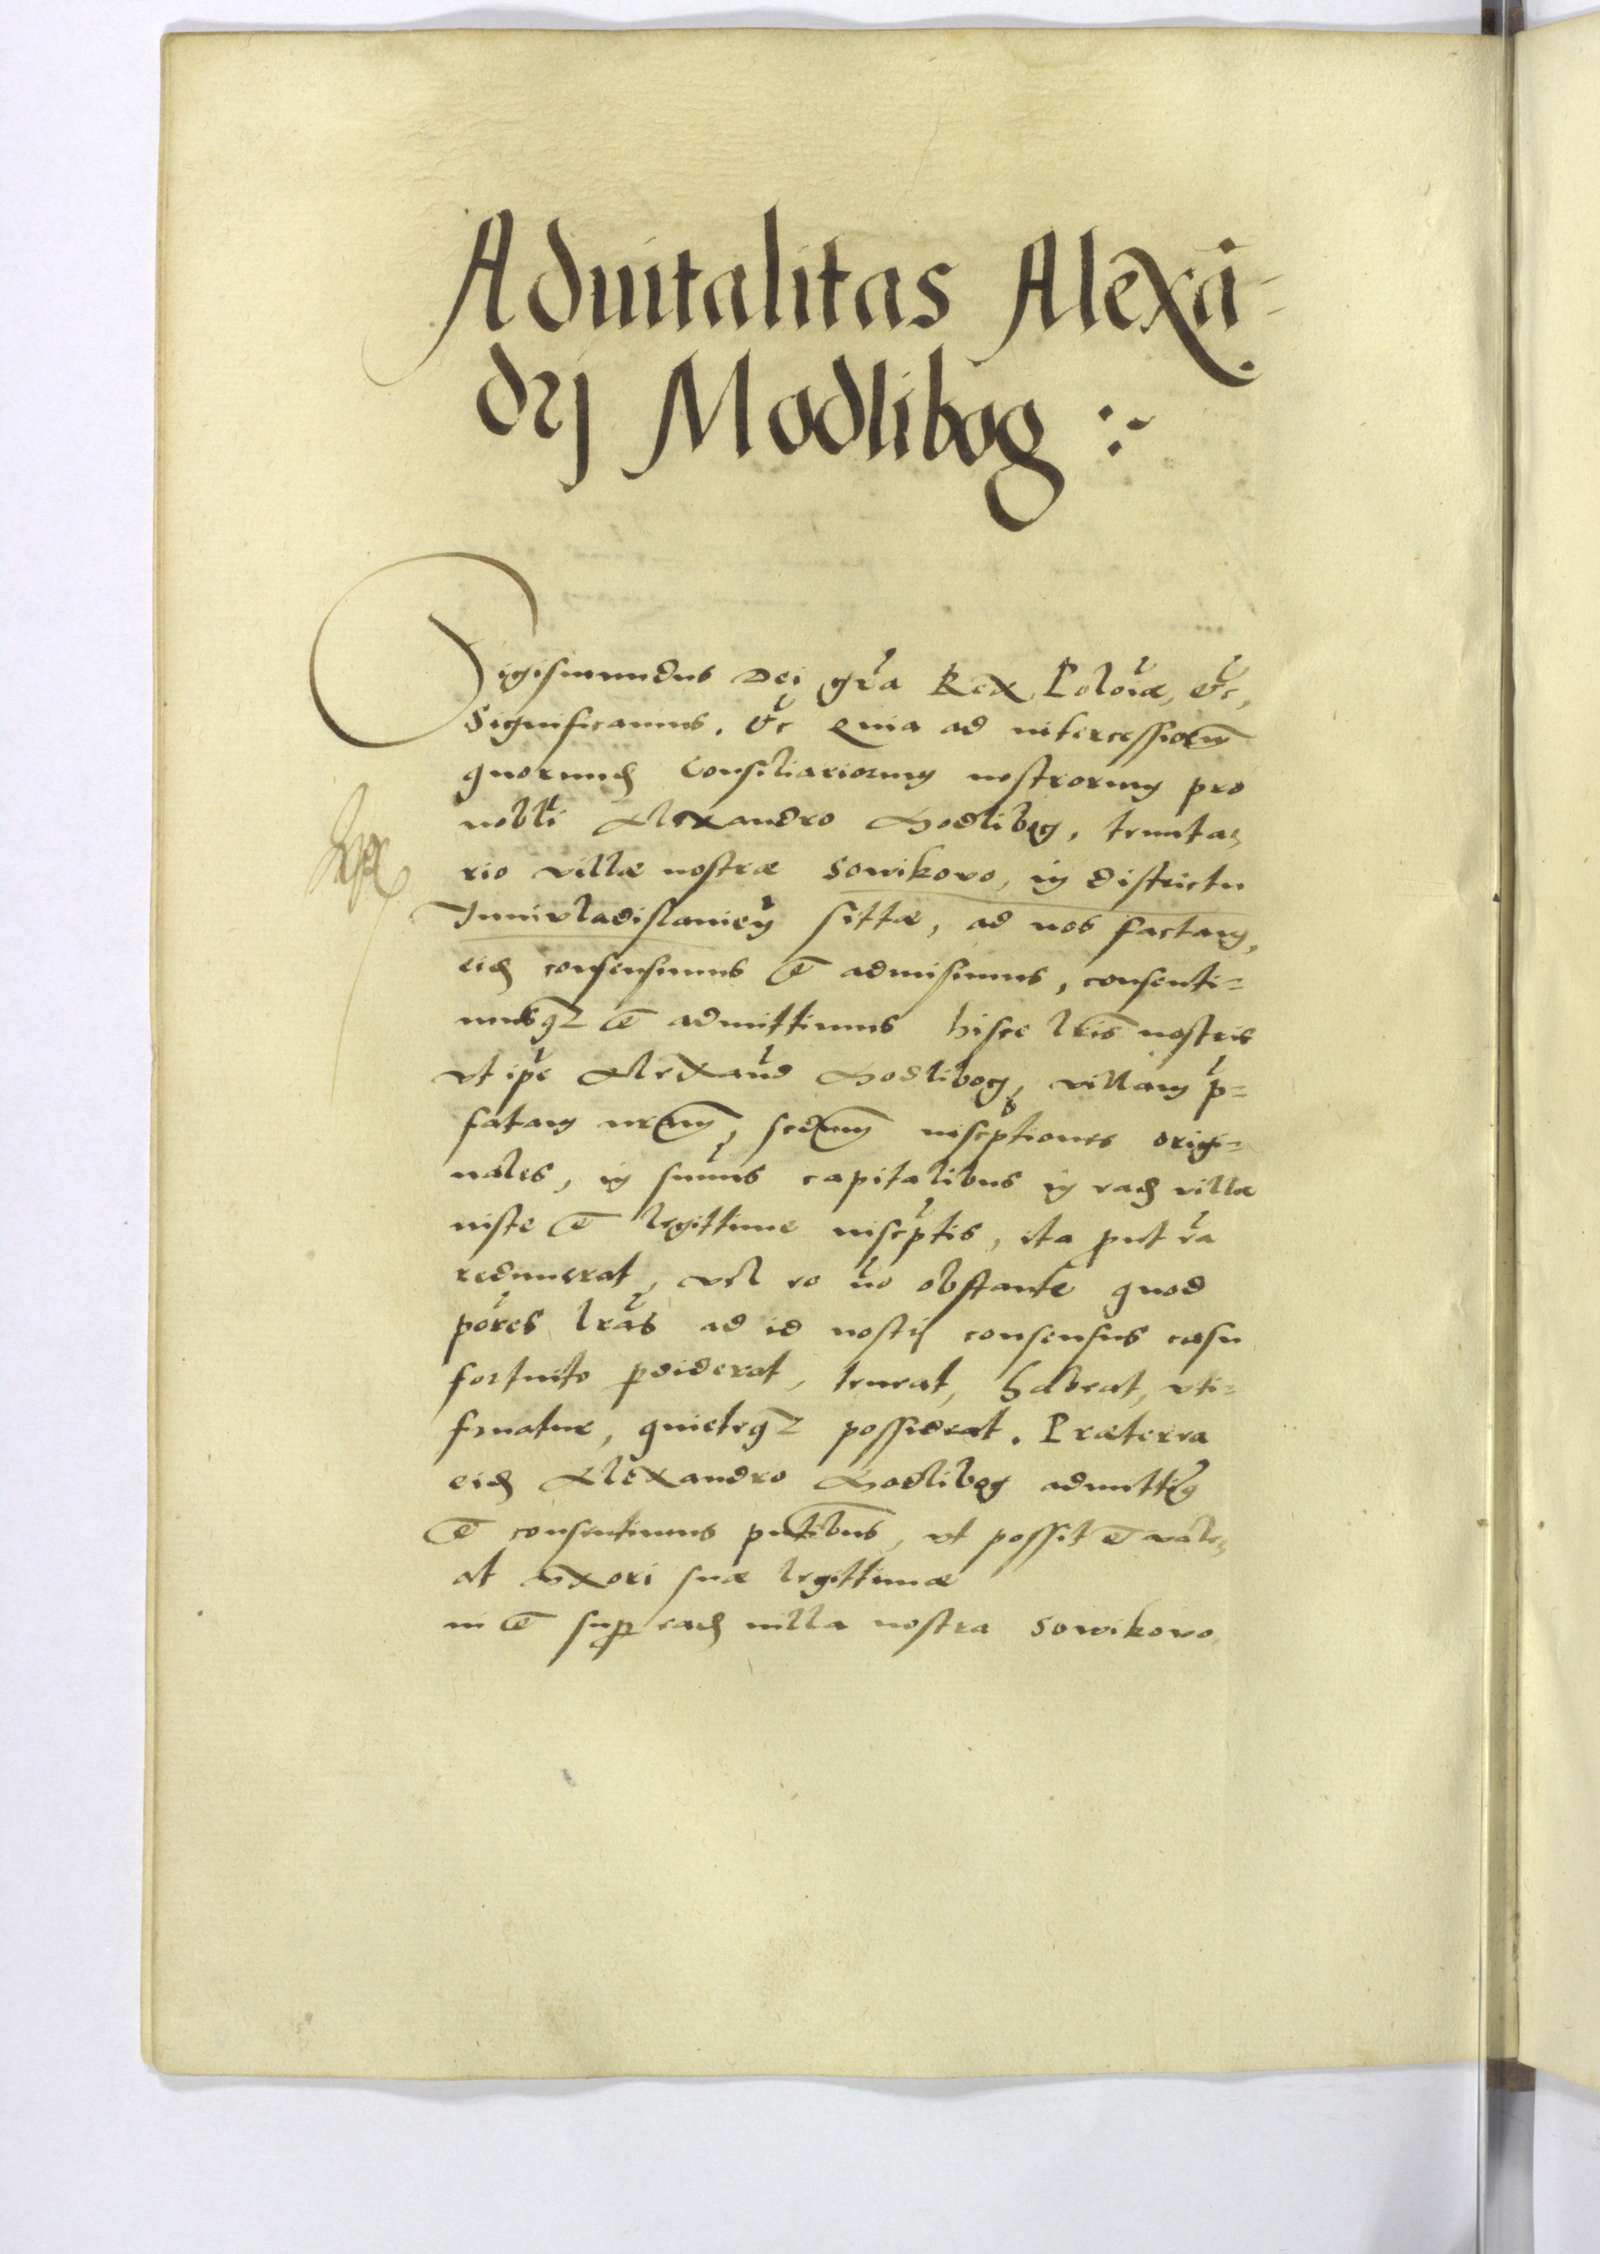 Aduitalitas Alexā-
drj Modlibog :~
Sigismundus Dei gr̃a Rex Polon̄iæ, &c̃,
Significamus, &c̃ Quia ad intercessionem
quorund̃ Consiliariorum nostrorum pro
nobili Alexandro Modlibog, tenuta=
rio villæ nostræ Sowikovo, in districtu
Juniwladislavień sittæ, ad nos factam,
eid̃ consensimus et admisimus, consenti=
musq3 et admittimus hisce lr̃is nostris
vt ip̃e Alexand̃ Modlibog, villam p̃=
fatam nr̃am, scd̃um inscr̃ptiones origi=
nales, in sum̃is capitalibus in ead̃ villa
iuste et legittime inscr̃ptis, ita prout ea
redimerat, vel eo ñõ obstante quod
pōres lr̃as ad id nostrj consensus casu
fortuito pdiderat, teneat, habeat, vti=
fruatur, quieteq3 possideat. Præterea
eid̃ Alexandro Modlibog admittim9
et consentimus pñtibus, vt possit et vale=
at vxori suæ legittimæ
in et sup ead̃ villa nostra Sowikovo,